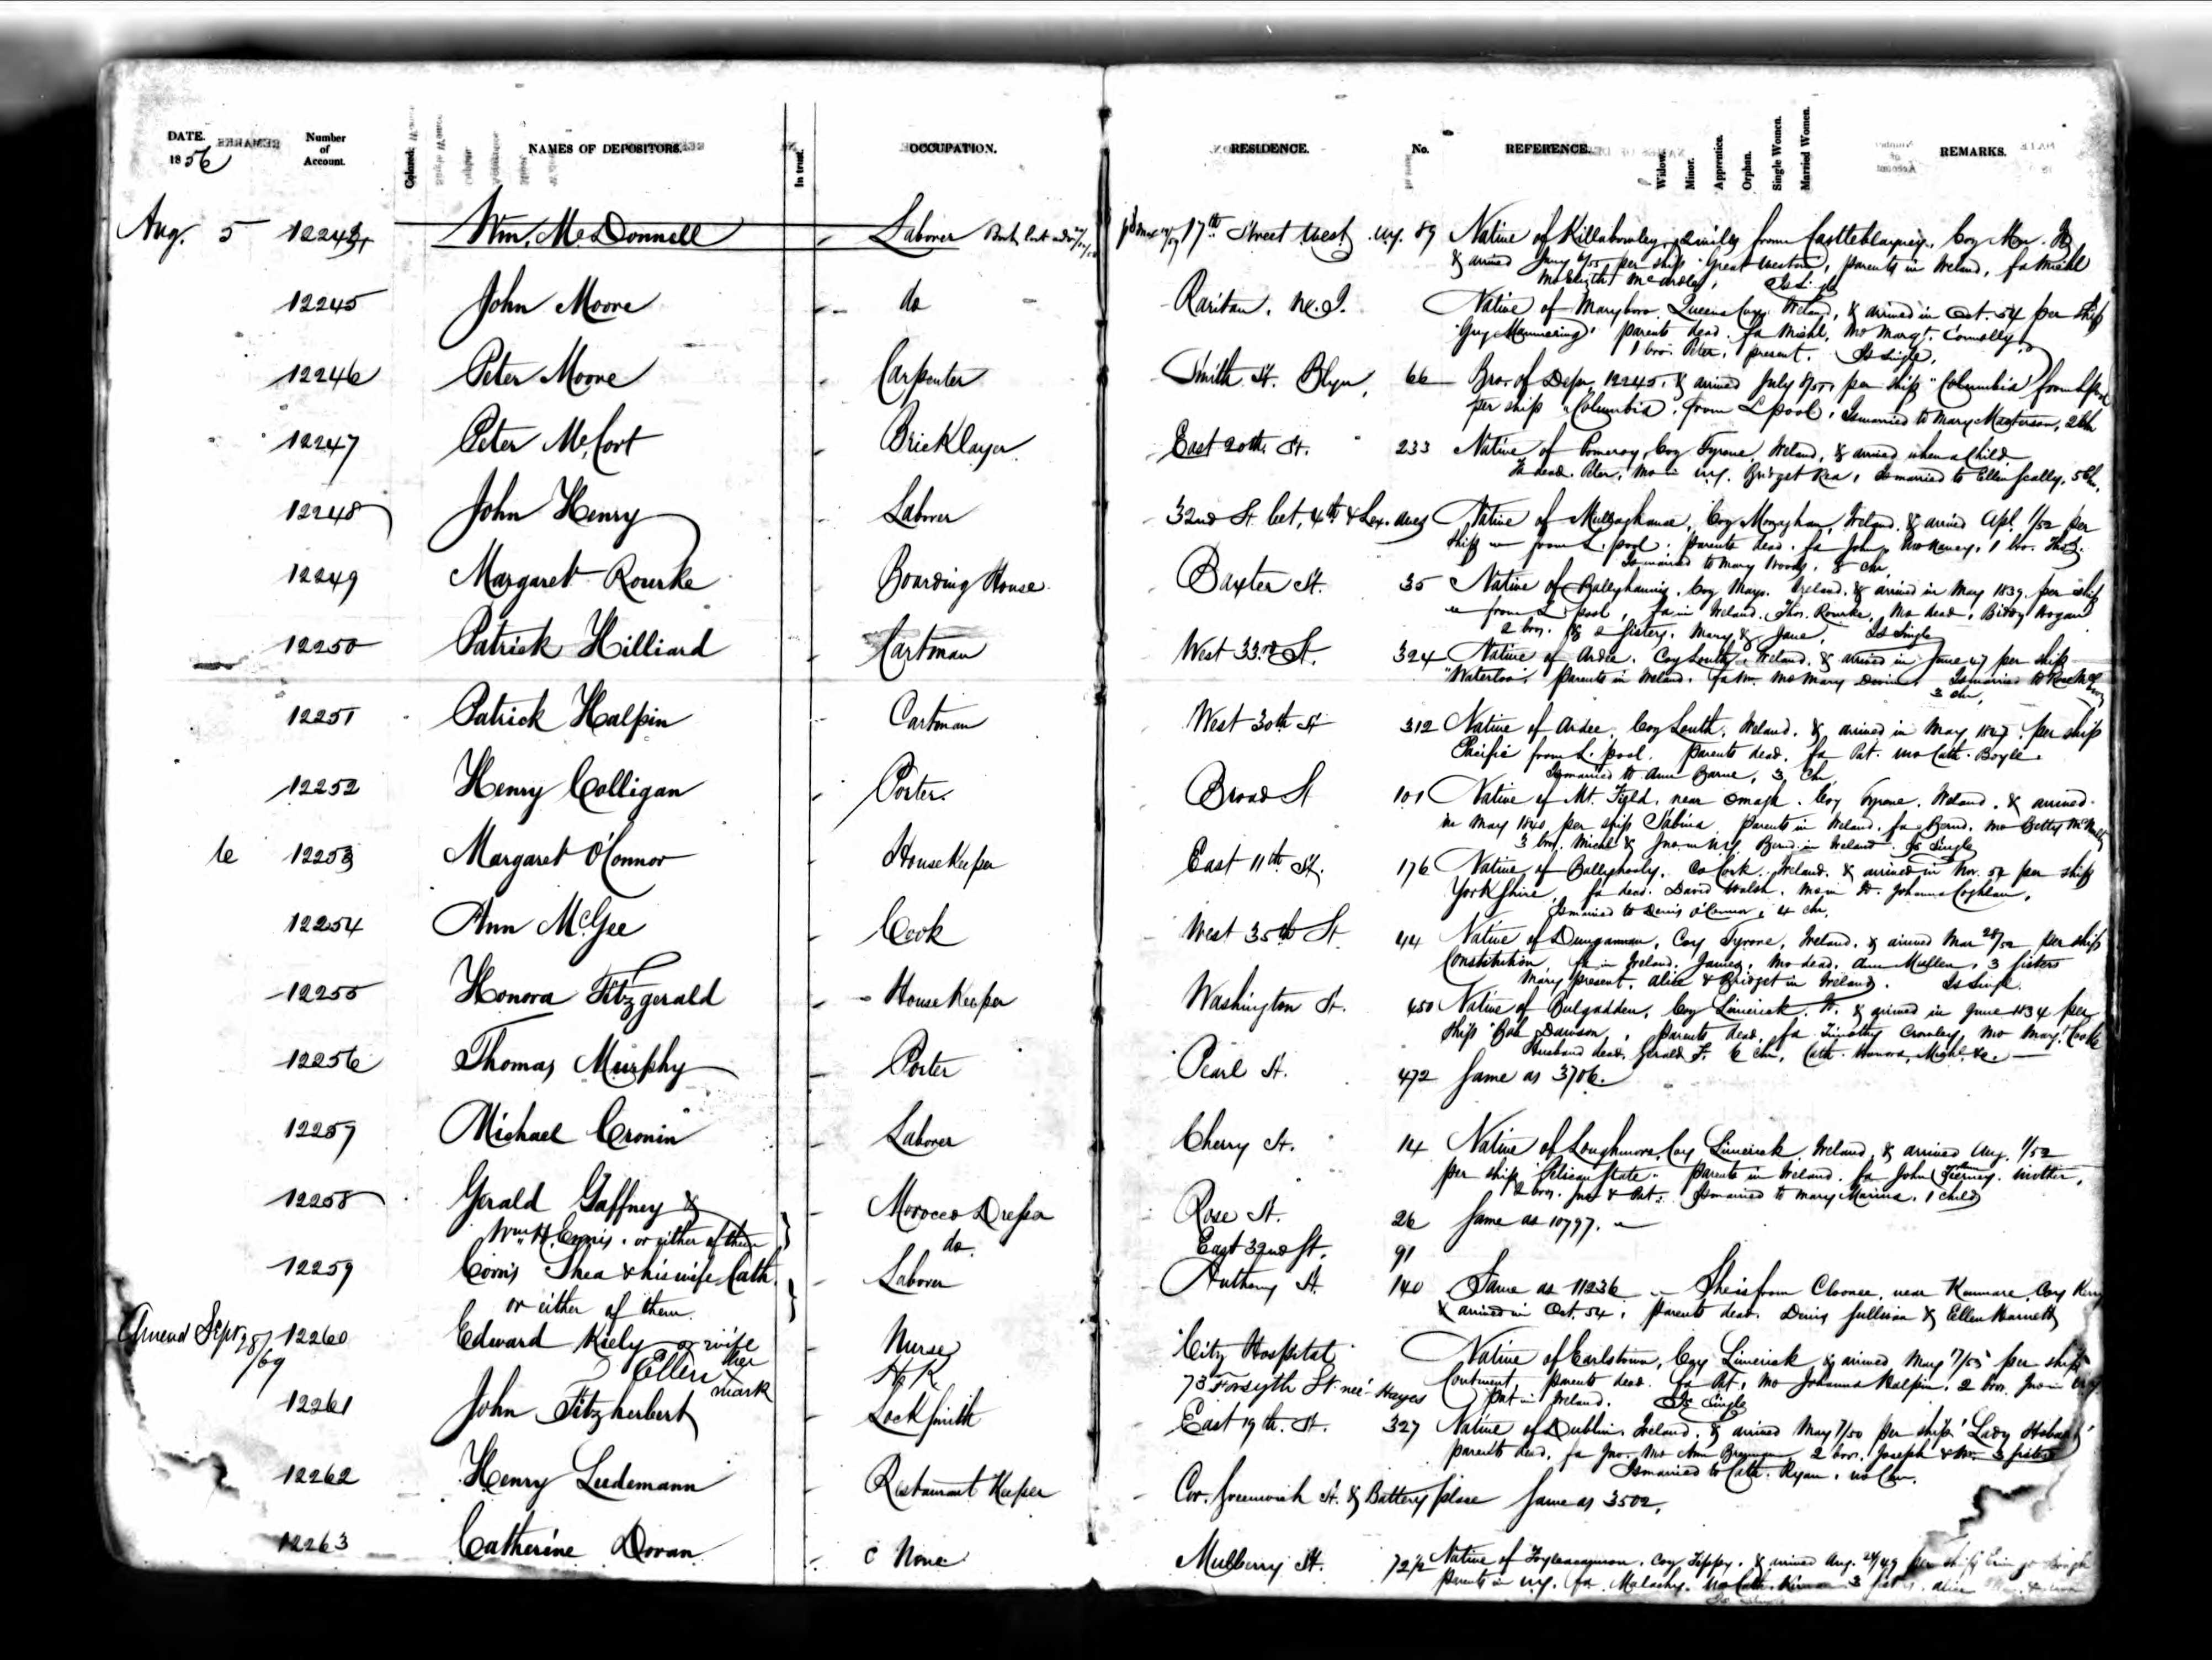 DATE. Number of Account. Colored. NAMES OF DEPOSITORS. In trust. OCCUPATION. RESIDENCE. No. REFERENCE. Widow. Minor. Apprentice. Orphan. Single Women. Married Women. REMARKS.
1856
Aug. 5 12244 Wm. McDonnell Laborer 17th Street West N.Y. 89 Native of Killabowley, 2 miles from Castleblayney, Coy Mon.
& arrived Jany 6/55 per ship "Great Western", parents in Ireland, fa Michl
Mo McArdle, Is Single
12245 John Moore do Raritan, N.J. Native of Maryboro, Queens Coy, Ireland, & arrived in Oct. 54 per Ship
"Guy Mannering" parents dead. fa Michl, mo Margt. Connolly,
1 bro. Peter, present. Is single.
12246 Peter Moore Carpenter Smith St. Blyn, 66 Bro. of Depr. 12245, & arrived July 8/55, per ship "Columbia" from Lpool
per ship "Columbia", from L pool, Is married to Mary Masterson, 2 Ch
12247 Peter McCort Bricklayer East 20th St. 233 Native of Pomeroy, Coy Tyrone, Ireland, & arrived when a Child
Fa dead. Peter, Mo in N.Y. Bridget Rea, Is married to Ellen Scally, 5 Ch.
12248 John Henry Laborer 32nd St. bet, 4th & Lex. Aves Native of Coy Monaghan, Ireland, & arrived Apl. 1/52 per
Ship from L. pool, parents dead, fa John, Mo Nancy, 1 bro. Thos.
Is married to Mary Woods, 8 Chr
12249 Margaret Rourke Boarding House Baxter St. 35 Native of Ballyhaunis, Coy Mayo, Ireland, & arrived in May 1839, per ship
from L. pool, Fa in Ireland, Thos. Rourke, Mo dead, Biddy Hogan
2 bros. & 2 sisters, Mary & Jane, Is Single
12250 Patrick Hilliard Cartman West 33rd St. 324 Native of Ardee, Coy Louth, Ireland, & arrived in June 47 per ship
"Waterloo", parents in Ireland, fa Wm. Mo Mary Devine, Is married to Rose
3 chr.
12251 Patrick Halpin Cartman West 30th St 312 Native of Ardee, Coy Louth, Ireland, & arrived in May 1847, per ship
Pacific from L. pool, Parents dead, fa Pat. mo Cath. Boyle.
Is married to Ann Barne, 3 Chr.
12252 Henry Colligan Porter. Broad St 101 Native of Mt. Field, near Omagh, Coy Tyrone, Ireland, & arrived
in May 1840 per ship Sabina, parents in Ireland, fa Bernd. mo Betty McNulty
3 bros. Michl & Jno. in N.Y. Bernd. in Ireland, Is Single
12253 Margaret O'Connor HouseKeeper East 11th St. 176 Native of Ballyhooly, Co Cork, Ireland, & arrived in Nov. 52 per ship
Yorkshire, fa dead. David Walsh, Mo in Johanna Coghlan,
Is married to Denis O'Connor, 4 chr.
12254 Ann McGee Cook West 35th St 44 Native of Dungannon, Coy Tyrone, Ireland, & arrived Mar 28/52, per ship
Constitution, fa in Ireland, James, Mo dead, Ann Mullen, 3 Sisters
Mary present, Alice & Bridget in Ireland. Is Single.
12255 Honora Fitzgerald HouseKeeper Washington St. 450 Native of Bulgadden, Coy Limerick, & arrived in June 1834 per
ship "Bob Dawson", parents dead, fa Timothy Crowley, Mo Mary Cooke
Husband dead, Gerald F. 6 Chr, Cath. Honora, Michl. &c.
12256 Thomas Murphy Porter Pearl St. 472 Same as 3706.
12257 Michael Cronin Laborer Cherry St. 14 Native of Loughmore, Coy Limerick, Ireland, & arrived Aug. 1/52
per ship "Pelican State" parents in Ireland, fa John, Tierney, mother,
2 bros. Jno & Pat. Is married to Mary Marina, 1 child
12258 Gerald Gaffney & Morocco Dresser Rose St. 26 Same as 10797.
Wm H. Ennis, or either of them do. East 32nd St. 91
12259 Corns Shea & his wife Cath. Laborer Anthony St. 140 Same as 11236 She is from Cloonee, near Kenmare, Coy Kerry
or either of them. & arrived in Oct. 54, parents dead. Denis Sullivan & Ellen Harnett
Amend Sept 28/69 12260 Edward Kiely or wife Nurse City Hospital Native of Earlstown, Coy Limerick, & arrived May 7/55 per ship
Ellen her mark H.K 73 Forsyth St. nee Hayes Continent, parents dead. fa Pat, Mo Johanna Halpin, 2 bros. Jno in N.Y.
Pat in Ireland. Is Single
12261 John Fitzherbert Locksmith East 19th. St. 327 Native of Dublin, Ireland, & arrived May 7/50 per ship "Lady Hobart"
parents dead, fa Jno. Mo Ann Brennan 2 bros. Joseph & Wm. 3 sisters
Is married to Cath. Ryan, no Chr.
12262 Henry Luedemann Restaurant Keeper Cor. Greenwich St. & Battery place Same as 3502.
12263 Catherine Doran None Mulberry St. 72 1/2 Native of Coy Tippy. & arrived Aug. 24/49 per ship Erin go Bragh
parents in N.Y. fa Malachy. Mo Cath. 3 Alice